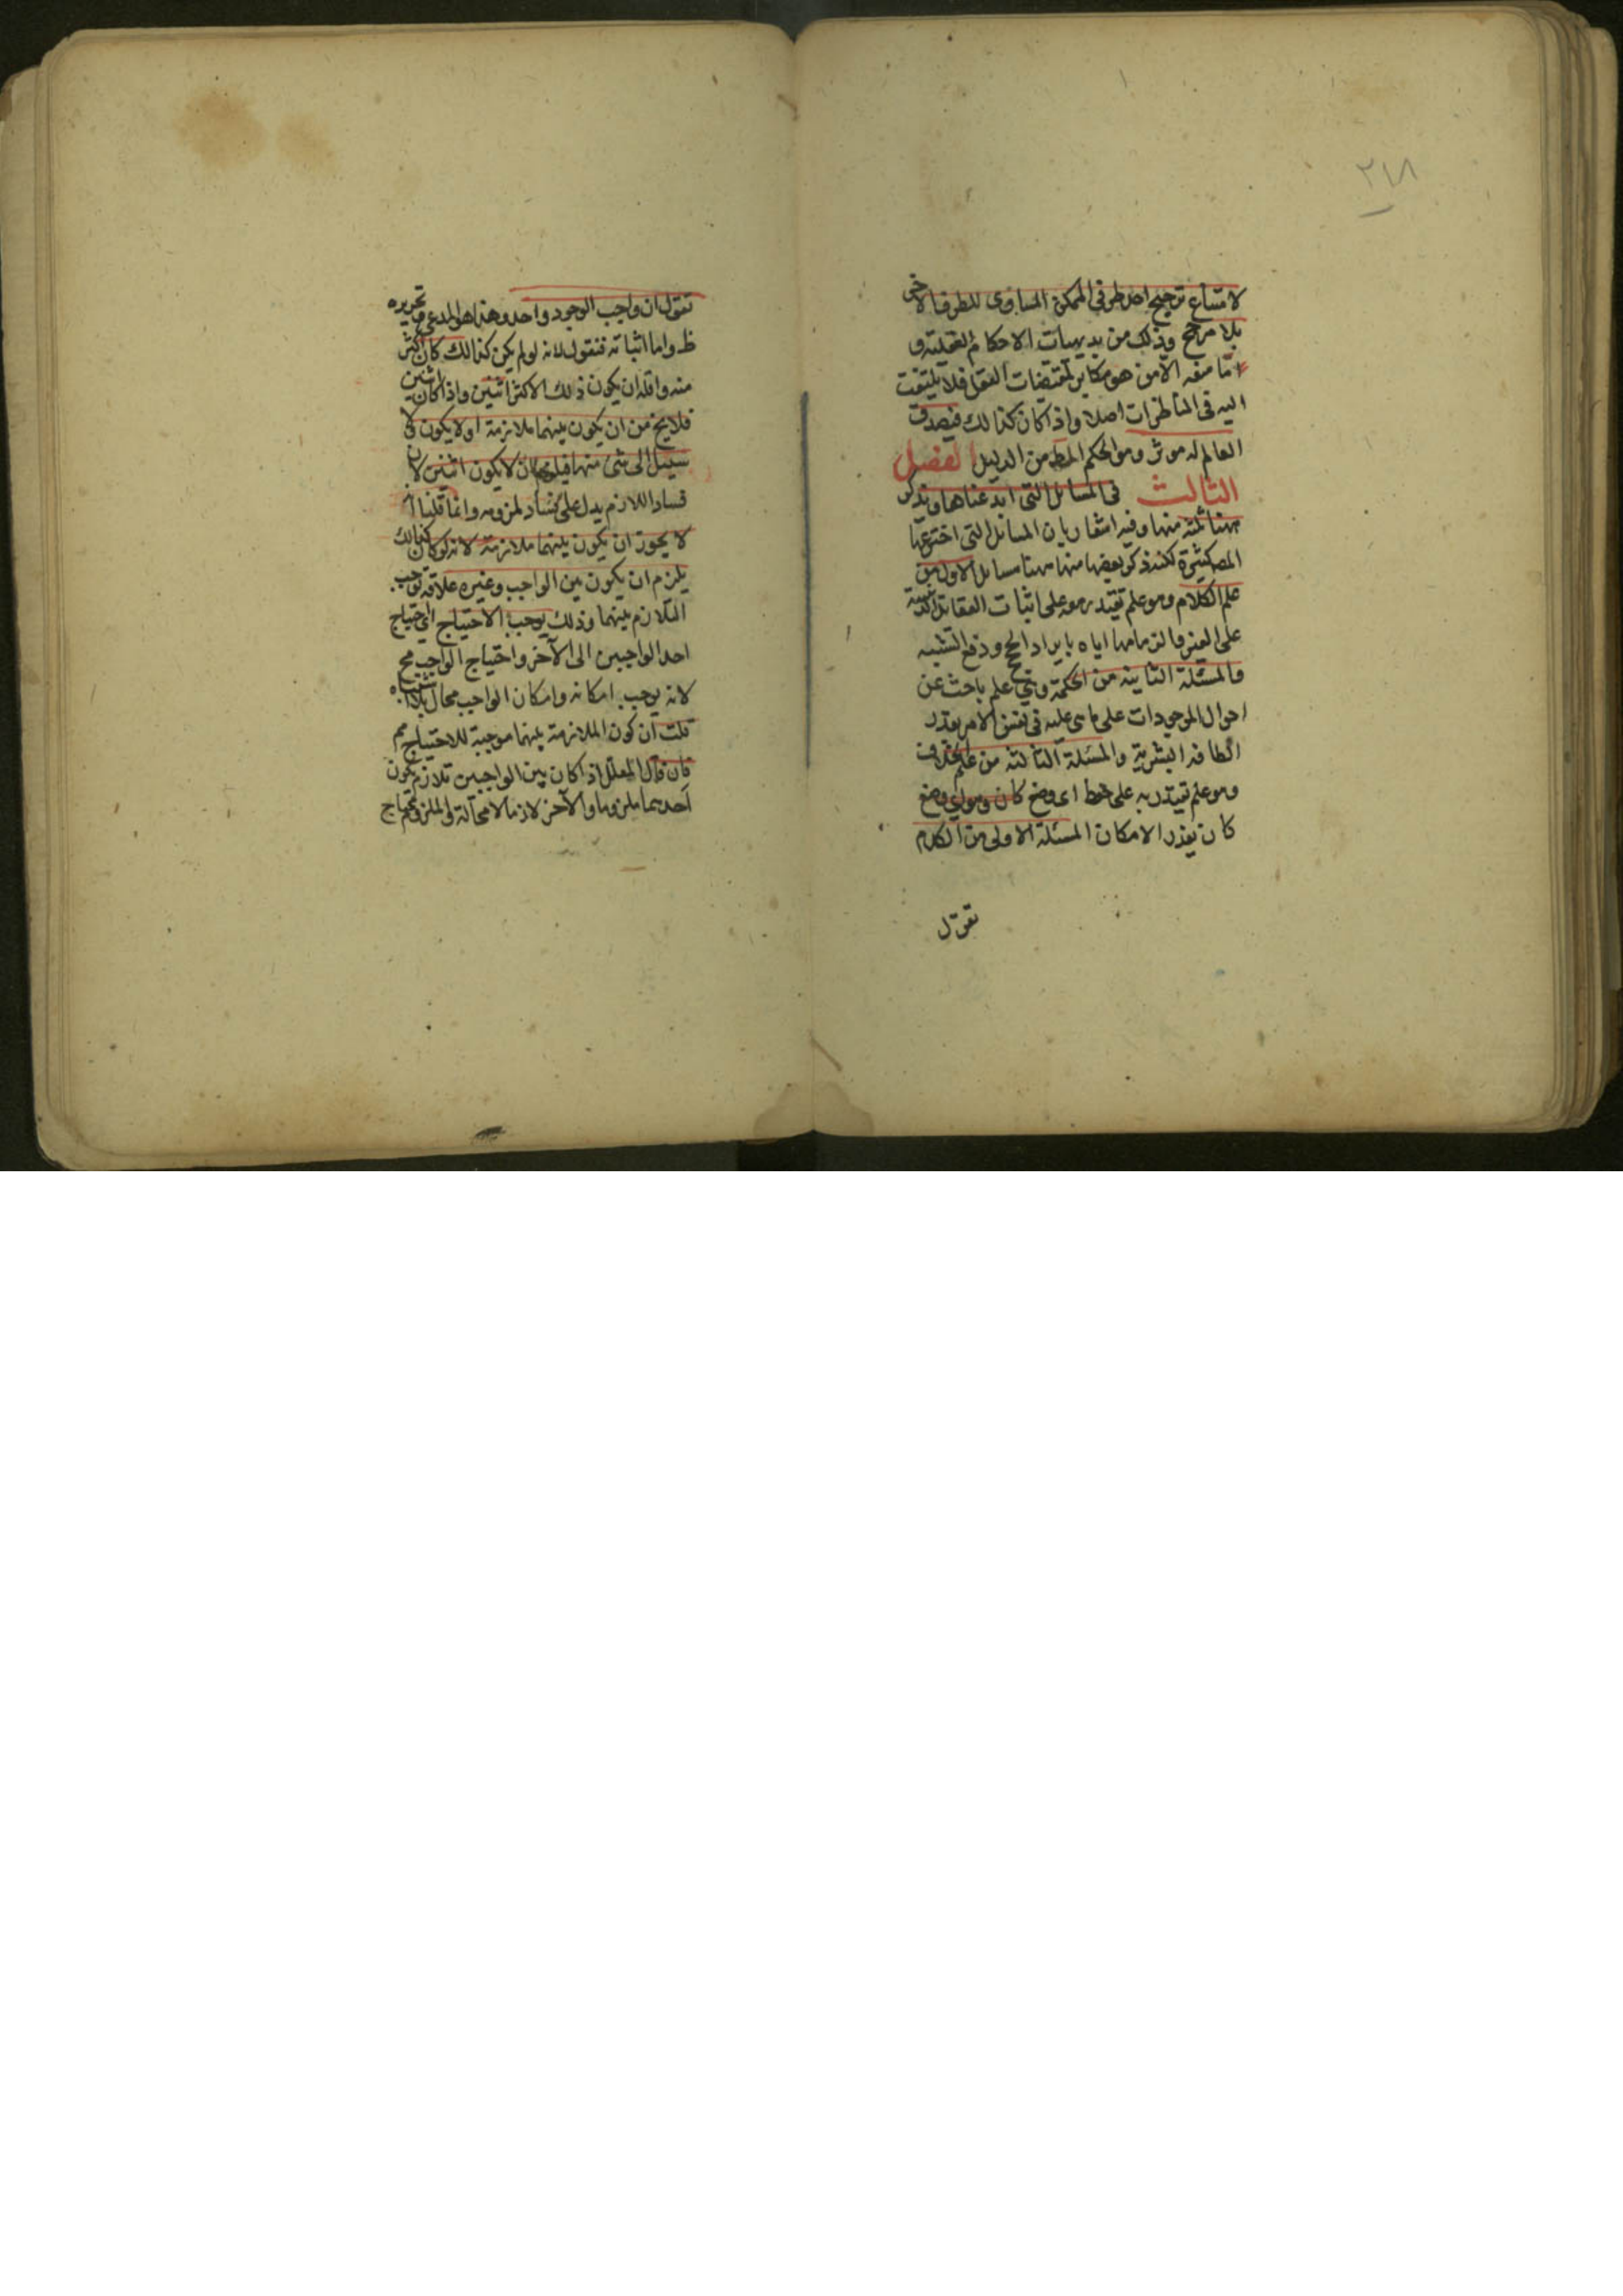 ٣١٨
لامتناع ترجيح احد طرفى الممكن المساوى للطرف الاخر
بلا مرجح وذلك من بديهيات الاحكام العقلية و
اما منعه الآمن هو مكابر لمقتضيات العقل فلا يلتفت
اليه فى المناظرات اصلا واذا كان كذالك فيصدق
العالم له موثر وهو الحكم المط من الدليل الفصل
الثالث فى المسائل التى ابدعناها ونذكر
ههنا ثلثة منها وفيه اشعار بان المسائل التى اخترعها
المص كثيرة لكنه ذكر بعضها منها ههنا مسائل الاولى من
علم الكلام وهو علم يقتدر معه على اثبات العقائد الدينية
على الغير والزامها اياه بايراد الحجج ودفع الشبه
والمسئلة الثانية من الحكمة وهى علم باحث عن
احوال الموجودات على ما هى عليه فى نفس الامر بقدر
الطاقة البشرية والمسئلة الثالثة من علم الخلاف
وهو علم يقتدر به على حفظ اى وضع كان وهدم اى وضع
كان بقدر الامكان المسئلة الاولى من الكلام
نقول
نقول ان واجب الوجود واحد وهذا هو المدعى وتحريره
ظ واما اثباته فنقول لانه لو لم يكن كذالك كان اكثر
منه واقله ان يكون ذلك الاكثر اثنين واذا كان اثنين
فلا يخ من ان يكون بينهما ملازمة او لا يكون لا
سبيل الى شئ منهما فيلزم ان لا يكون اثنين لان
فساد اللازم يدل على فساد ملزومه وانما قلنا
لا يجوز ان يكون بينهما ملازمة لانه لو كان كذالك
يلزم ان يكون بين الواجب وغيره علاقة توجب
التلازم بينهما وذلك يوجب الاحتياج اى احتياج
احد الواجبين الى الآخر واحتياج الواجب مح
لانه يوجب امكانه وامكان الواجب محال بلا اشتباه
قلت ان كون الملازمة بينهما موجبة للاحتياج مم
فان قال المعلل اذا كان بين الواجبين تلازم يكون
احدهما ملزوما والآخر لازما لا محالة والملزوم يحتاج